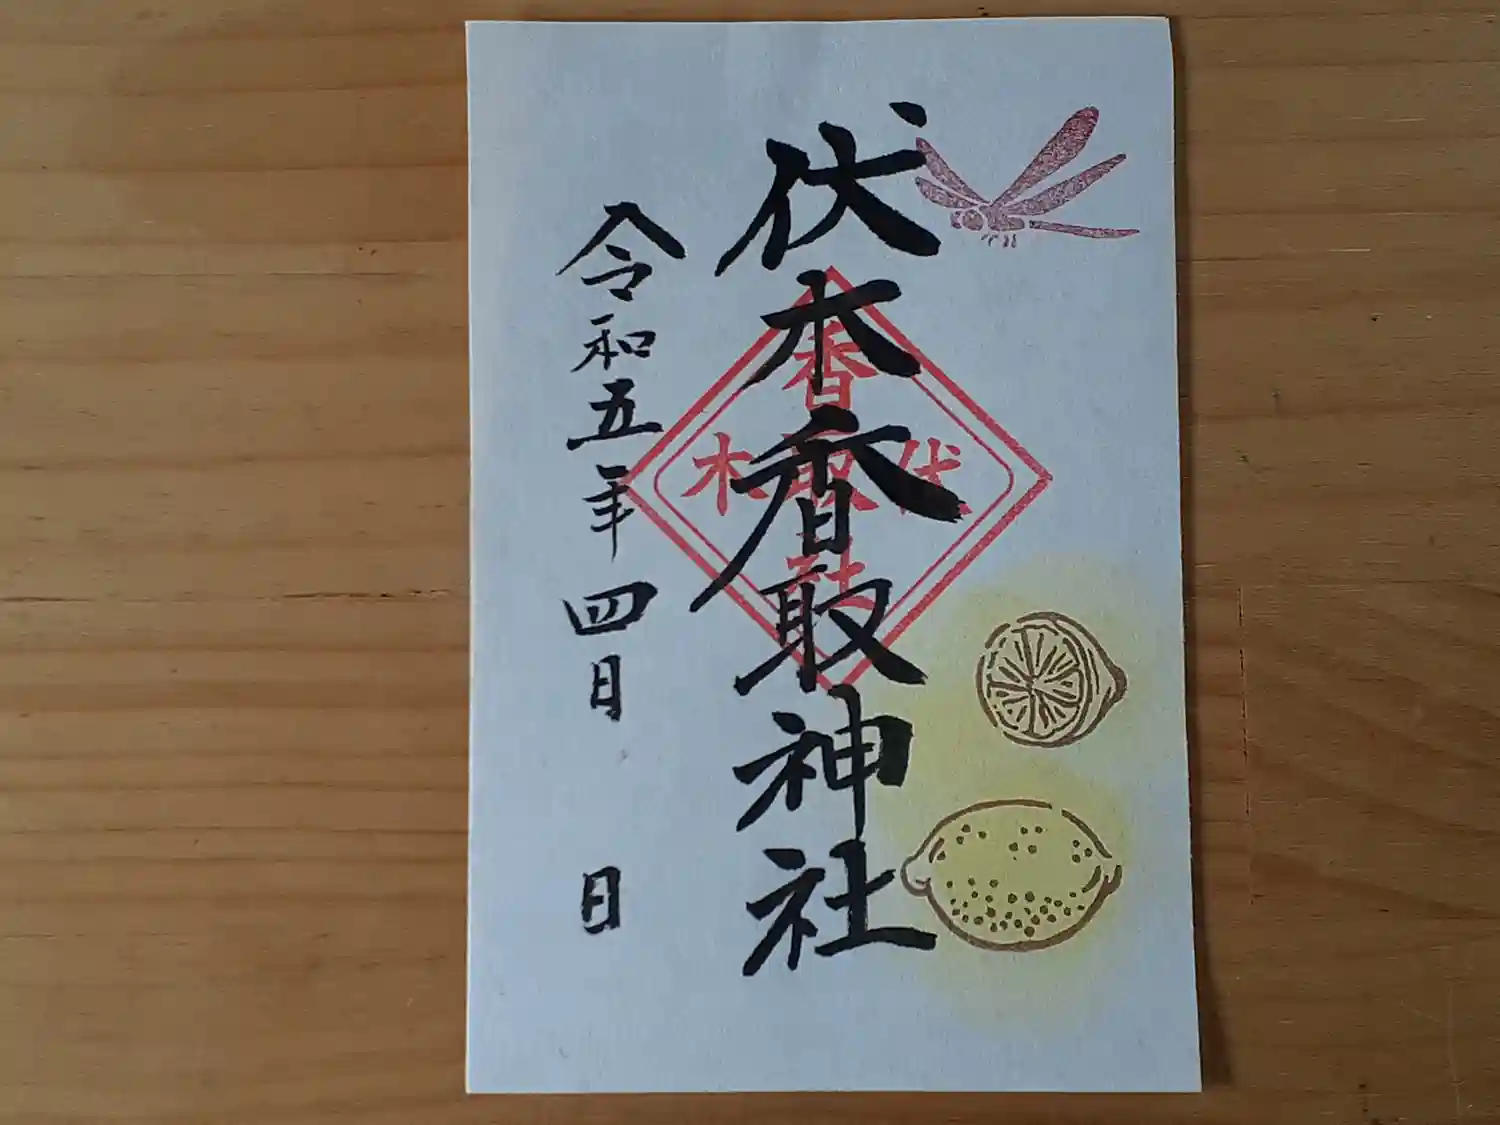 伏木香取神社
香
伏取木
社
令和五年四月 日